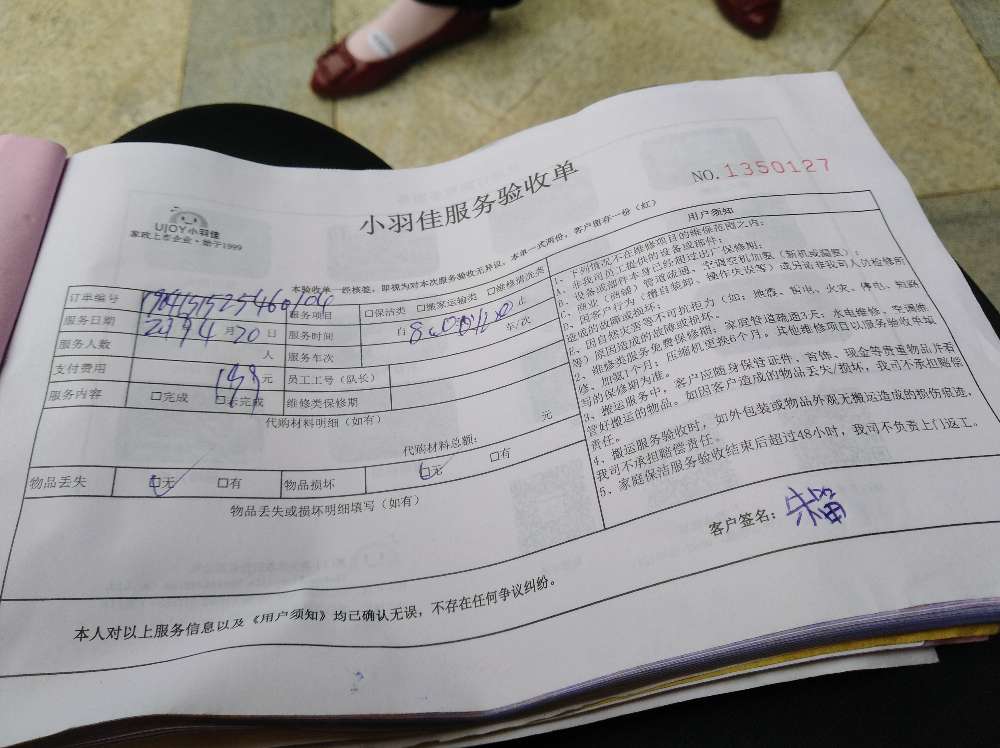 小羽佳服务验收单
NO. 1350127
UJOY小羽佳
家政上市企业·始于1999
本验收单一经核签，即视为对本次服务验收无异议，本单一式两份，客户留存一份（红）
订单编号
服务项目 □保洁类 □搬家运输类 □维修清洗类
服务日期 月20日
服务时间 自 止
服务人数 人
服务车次 车/次
支付费用 元
员工工号（队长）
服务内容 □完成 □未完成
维修类保修期
代购材料明细（如有）
代购材料总额： 元
物品丢失 □无 □有
物品损坏 □无 □有
物品丢失或损坏明细填写（如有）
用户须知
1、下列情况不在维修项目的维保范围之内：
A、非我司员工提供的设备或部件；
B、设备或部件本身已经超过出厂保修期；
C、商业（商铺）管道疏通、空调空机加氨（新机或漏氨）；
D、因客户行为（擅自装卸、操作失误等）或另请非我司人员检修所
造成的故障或损坏；
E、因自然灾害等不可抗拒力（如：地震、雷电、火灾、停电、短路
等）原因造成的故障或损坏。
2、维修类服务免费保修期，家庭管道疏通3天；水电维修、空调维
修、加氨1个月；压缩机更换6个月。其他维修项目以服务验收单填
写的保修期为准。
3、搬运服务中，客户应随身保管证件、首饰、现金等贵重物品并看
管好搬运的物品。如因客户造成的物品丢失/损坏，我司不承担赔偿
责任。
4、搬运服务验收时，如外包装或物品外观无搬运造成的损伤痕迹，
我司不承担赔偿责任。
5、家庭保洁服务验收结束后超过48小时，我司不负责上门返工。
客户签名：
本人对以上服务信息以及《用户须知》均已确认无误，不存在任何争议纠纷。